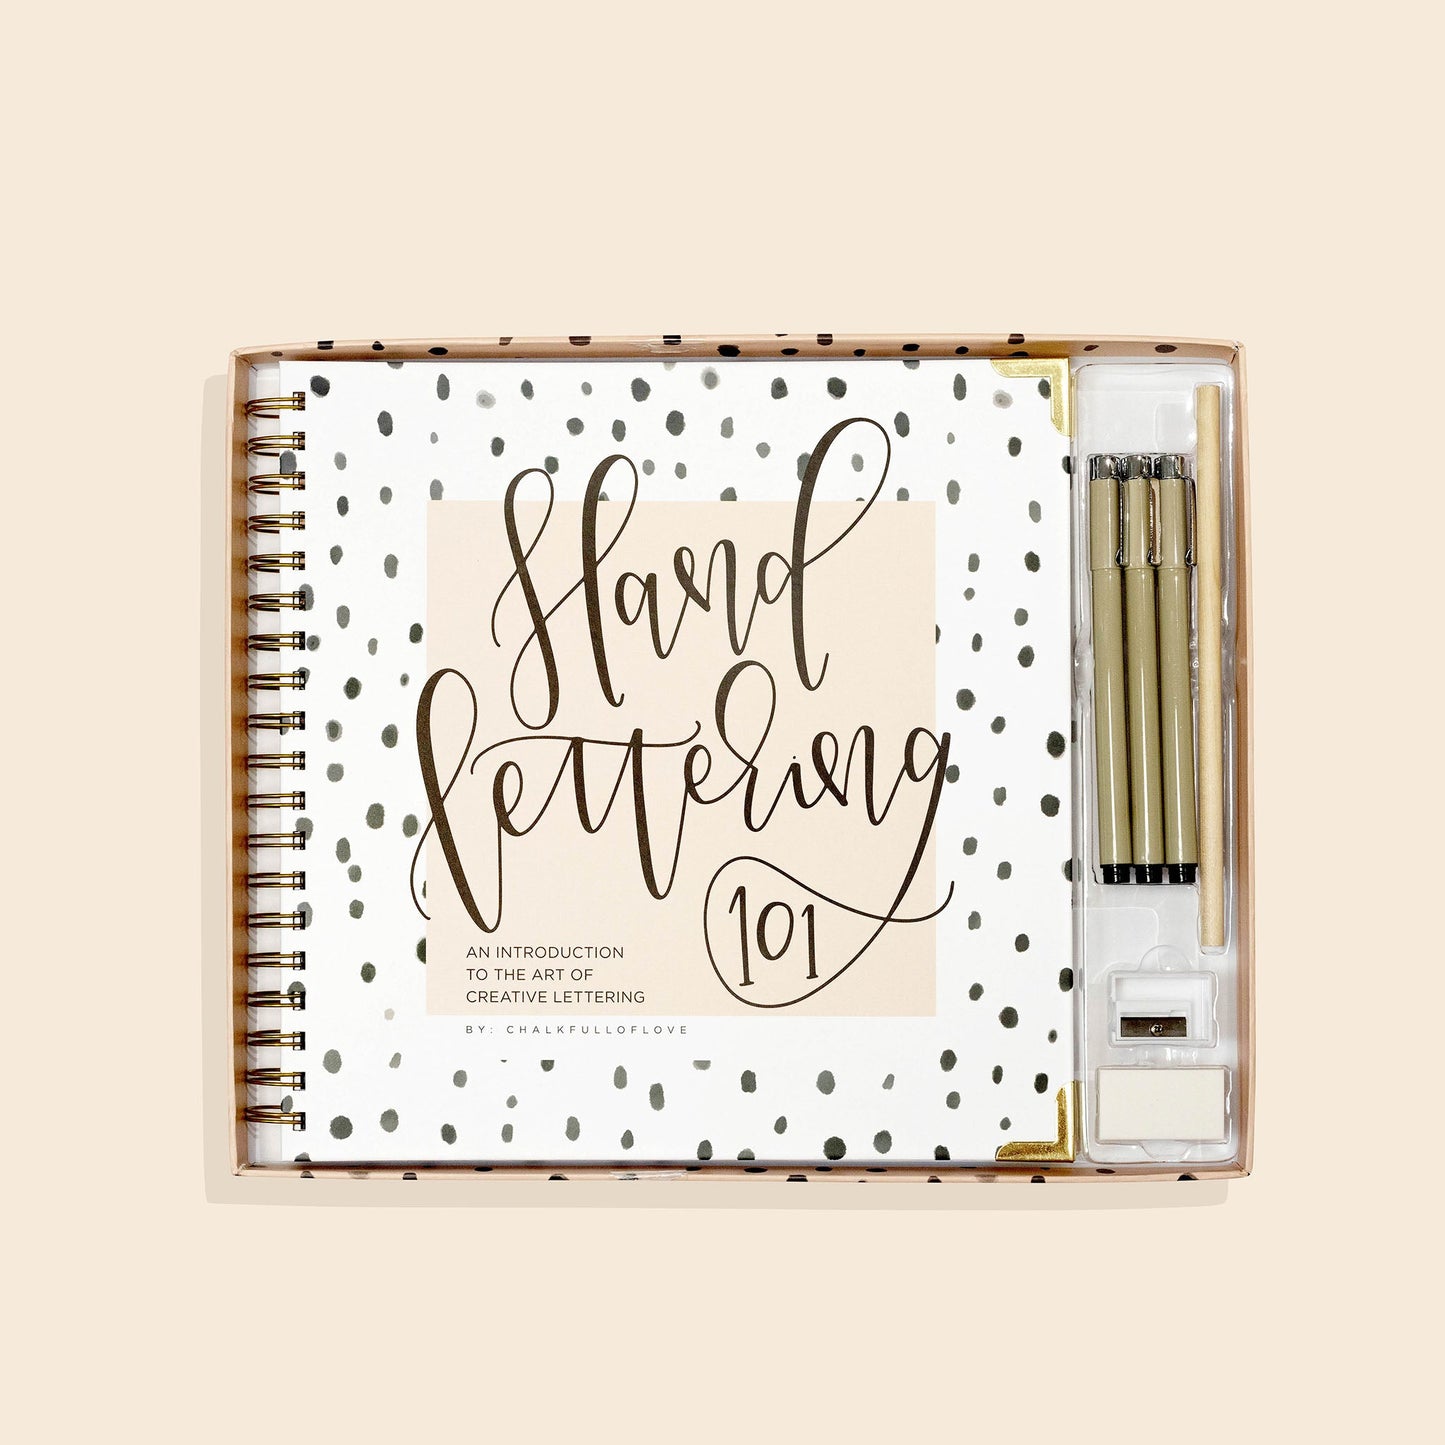 Hand
lettering
101
AN INTRODUCTION
TO THE ART OF
CREATIVE LETTERING
BY: CHALKFULLOFLOVE